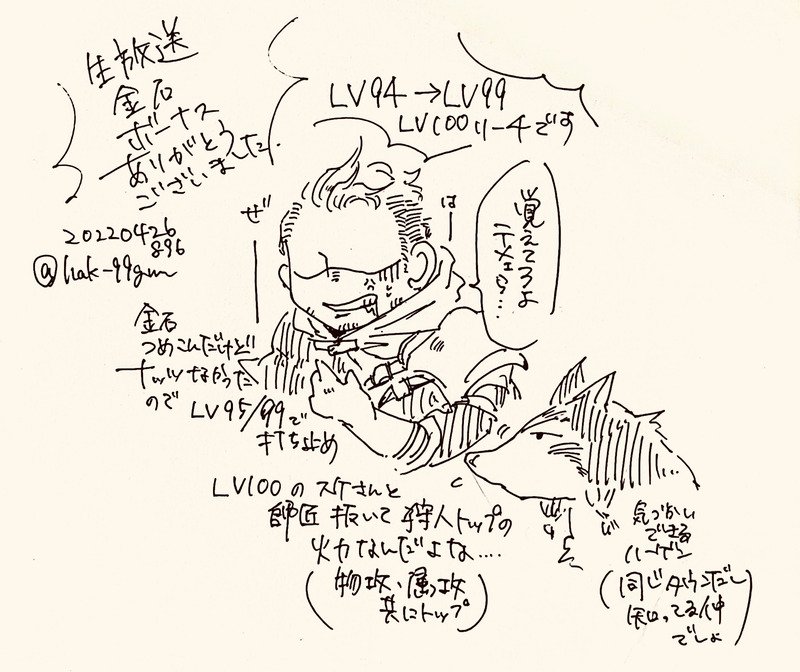 生放送
金石
ボーナス
ありがとう
ございました
20220426
896
@hak-99gum
LV94→LV99
LV100リーチです
ぜ
は
覚えてろよ
テメェら…
金石
つめこんだけど
ナッツなかった
ので
LV95/99で
打ち止め
LV100のスケさんと
師匠抜いて狩人トップの
火力なんだよな….
(物攻、属攻
共にトップ)
気づかい
できる
ハーゲン
(同じダウンだし
知ってる仲
でしょ)